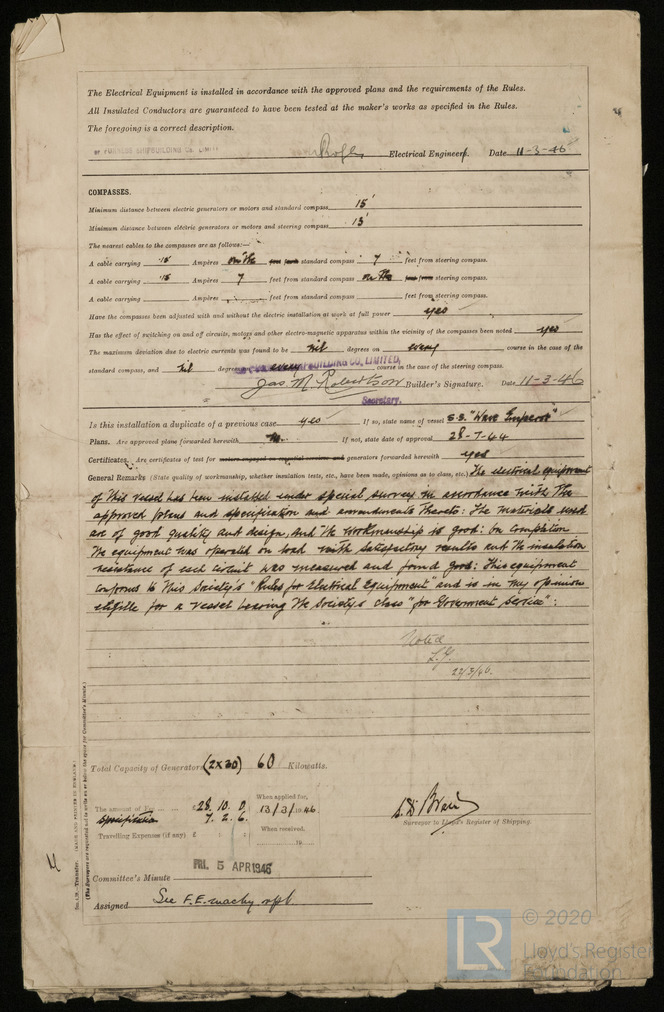 The Electrical Equipment is installed in accordance with the approved plans and the requirements of the Rules.
All Insulated Conductors are guaranteed to have been tested at the maker's works as specified in the Rules.
The foregoing is a correct description.
FURNESS SHIPBUILDING CO. LIMITED Electrical Engineers. Date 11-3-46
COMPASSES.
Minimum distance between electric generators or motors and standard compass 15'
Minimum distance between electric generators or motors and steering compass 13'
The nearest cables to the compasses are as follows:—
A cable carrying .15 Ampères on the standard compass 7 feet from steering compass.
A cable carrying .15 Ampères 7 feet from standard compass on the steering compass.
A cable carrying Ampères feet from standard compass feet from steering compass.
Have the compasses been adjusted with and without the electric installation at work at full power yes
Has the effect of switching on and off circuits, motors and other electro-magnetic apparatus within the vicinity of the compasses been noted yes
The maximum deviation due to electric currents was found to be nil degrees on every course in the case of the
standard compass, and nil degrees on every course in the case of the steering compass.
SHIPBUILDING CO., LIMITED,
Jas M. Robertson Builder's Signature. Date 11-3-46
Secretary.
Is this installation a duplicate of a previous case yes If so, state name of vessel S.S. "Wave Emperor"
Plans. Are approved plans forwarded herewith no. If not, state date of approval 28-7-44
Certificates. Are certificates of test for motors engaged on essential services and generators forwarded herewith yes
General Remarks (State quality of workmanship, whether insulation tests, etc., have been made, opinions as to class, etc.) The electrical equipment
of this vessel has been installed under special survey in accordance with the
approved plans and specification and amendments thereto: The materials used
are of good quality and design, and the workmanship is good: On completion
the equipment was operated on load with satisfactory results and the insulation
resistance of each circuit was measured and found good: This equipment
conforms to this Society's "Rules for Electrical Equipment" and is in my opinion
eligible for a vessel bearing the Society's class "for Government Service":
Noted
27/3/46.
Total Capacity of Generators (2x30) 60 Kilowatts.
The amount of Fee £ 28. 10. 0. When applied for, 13/3/1946
Specification 7. 2. 6.
Travelling Expenses (if any) £ : : When received, 19
Surveyor to Lloyd's Register of Shipping.
FRI. 5 APR 1946
Committee's Minute
Assigned See F.E. machy rpt
No. 4,26.—Transfer. (MADE AND PRINTED IN ENGLAND.)
(The Surveyors are requested not to write on or below the space for Committee's Minute.)
LR © 2020
Lloyd's Register
Foundation